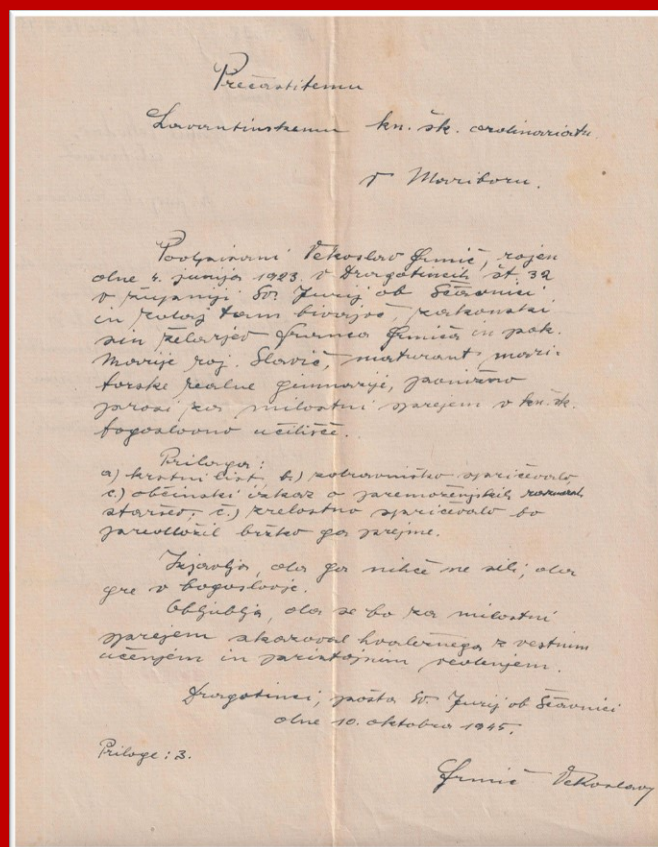 Prečastitemu
Lavantinskemu kn. šk. ordinariatu
v Mariboru.
Podpisani Vekoslav Grmič, rojen
dne 4. junija 1923. v Dragotincih št. 32
v župniji Sv. Jurij ob Ščavnici
in sedaj tam bivajoč, zakonski
sin želarjev Franca Grmiča in pok.
Marije roj. Slavič, maturant mari-
borske realne gimnazije, ponižno
prosi za milostni sprejem v kn. šk.
bogoslovno učilišče.
Prilaga:
a) krstni list, b.) zdravniško spričevalo,
c.) občinski izkaz o premoženjskih razmerah
staršev, č.) zrelostno spričevalo bo
predložil bržko ga prejme.
Izjavlja, da ga nihče ne sili, da
gre v bogoslovje.
Obljublja, da se bo za milostni
sprejem skazoval hvaležnega z vestnim
učenjem in pristojnim vedenjem.
Dragotinci, pošta Sv. Jurij ob Ščavnici
dne 10. oktobra 1945.
Priloge: 3.
Grmič Vekoslav